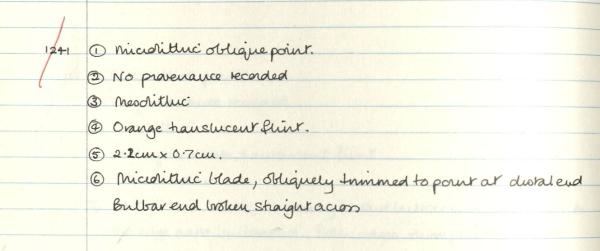 1241 ① Microlithic oblique point.
② No provenance recorded
③ Mesolithic
④ Orange translucent flint.
⑤ 2.2cm x 0.7cm.
⑥ Microlithic blade, obliquely trimmed to point at distal end
Bulbar end broken straight across